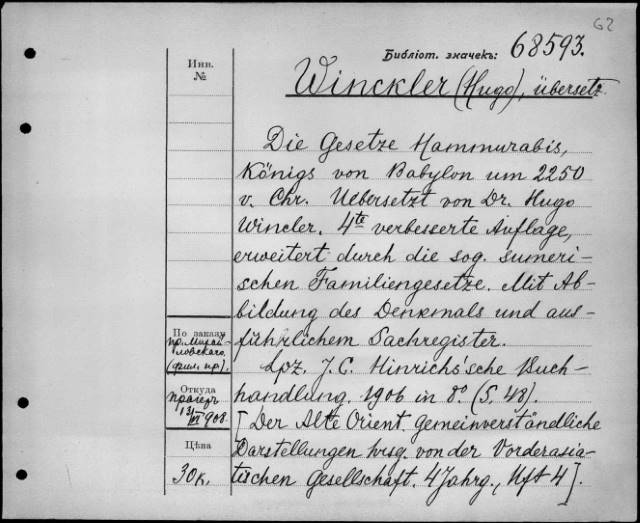 62
Библіот. значекъ: 68593.
Инв.
№
Winckler (Hugo), übersetz.
Die Gesetze Hammurabis,
Königs von Babylon um 2250
v. Chr. Uebersetzt von Dr. Hugo
Wincler. 4te verbesserte Auflage,
erweitert durch die sog. sumeri-
schen Familiengesetze. Mit Ab-
bildung des Denkmals und aus-
führlichem Sachregister.
Lpz. J. C. Hinrichs'sche Buch-
handlung. 1906 in 8º (S. 48).
[Der Alte Orient. Gemeinverständliche
Darstellungen hrsg. von der Vorderasia-
tischen Gesellschaft. 4 Jahrg., Hft 4].
По заказу
пр. Михай-
ловскаго.
(фил. пр).
Откуда
13/VI 908.
Цѣна
30 к.